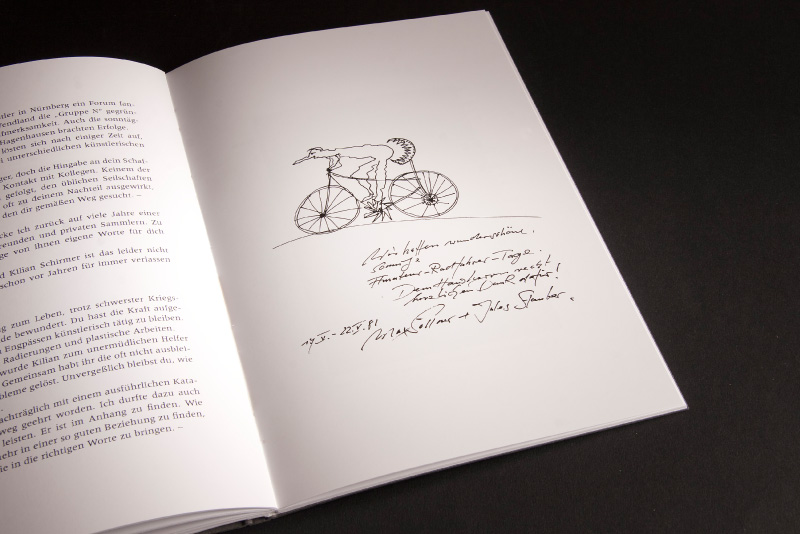 ler in Nürnberg ein Forum fan-
endland die „Gruppe N" gegrün-
fmerksamkeit. Auch die sonntäg-
Hagenhausen brachten Erfolge.
lösten sich nach einiger Zeit auf,
i unterschiedlichen künstlerischen
ger, doch die Hingabe an dein Schaf-
Kontakt mit Kollegen. Keinem der
gefolgt, den üblichen Seilschaften
oft zu deinem Nachteil ausgewirkt,
den dir gemäßen Weg gesucht. –
cke ich zurück auf viele Jahre einer
reunden und privaten Sammlern. Zu
ge von ihnen eigene Worte für dich
d Kilian Schirmer ist das leider nicht
schon vor Jahren für immer verlassen
g zum Leben, trotz schwerster Kriegs-
de bewundert. Du hast die Kraft aufge-
Engpässen künstlerisch tätig zu bleiben.
Radierungen und plastische Arbeiten.
wurde Kilian zum unermüdlichen Helfer
Gemeinsam habt ihr die oft nicht ausblei-
bleme gelöst. Unvergeßlich bleibst du, wie
achträglich mit einem ausführlichen Kata-
weg geehrt worden. Ich durfte dazu auch
leisten. Er ist im Anhang zu finden. Wie
ehr in einer so guten Beziehung zu finden,
ie in die richtigen Worte zu bringen. –
Wir hatten wunderschöne,
sonnige
Amateur-Radfahrer-Tage.
Dem Hausherrn recht
herzlichen Dank dafür!
- 22.V.81
Max + Jules Stauber.